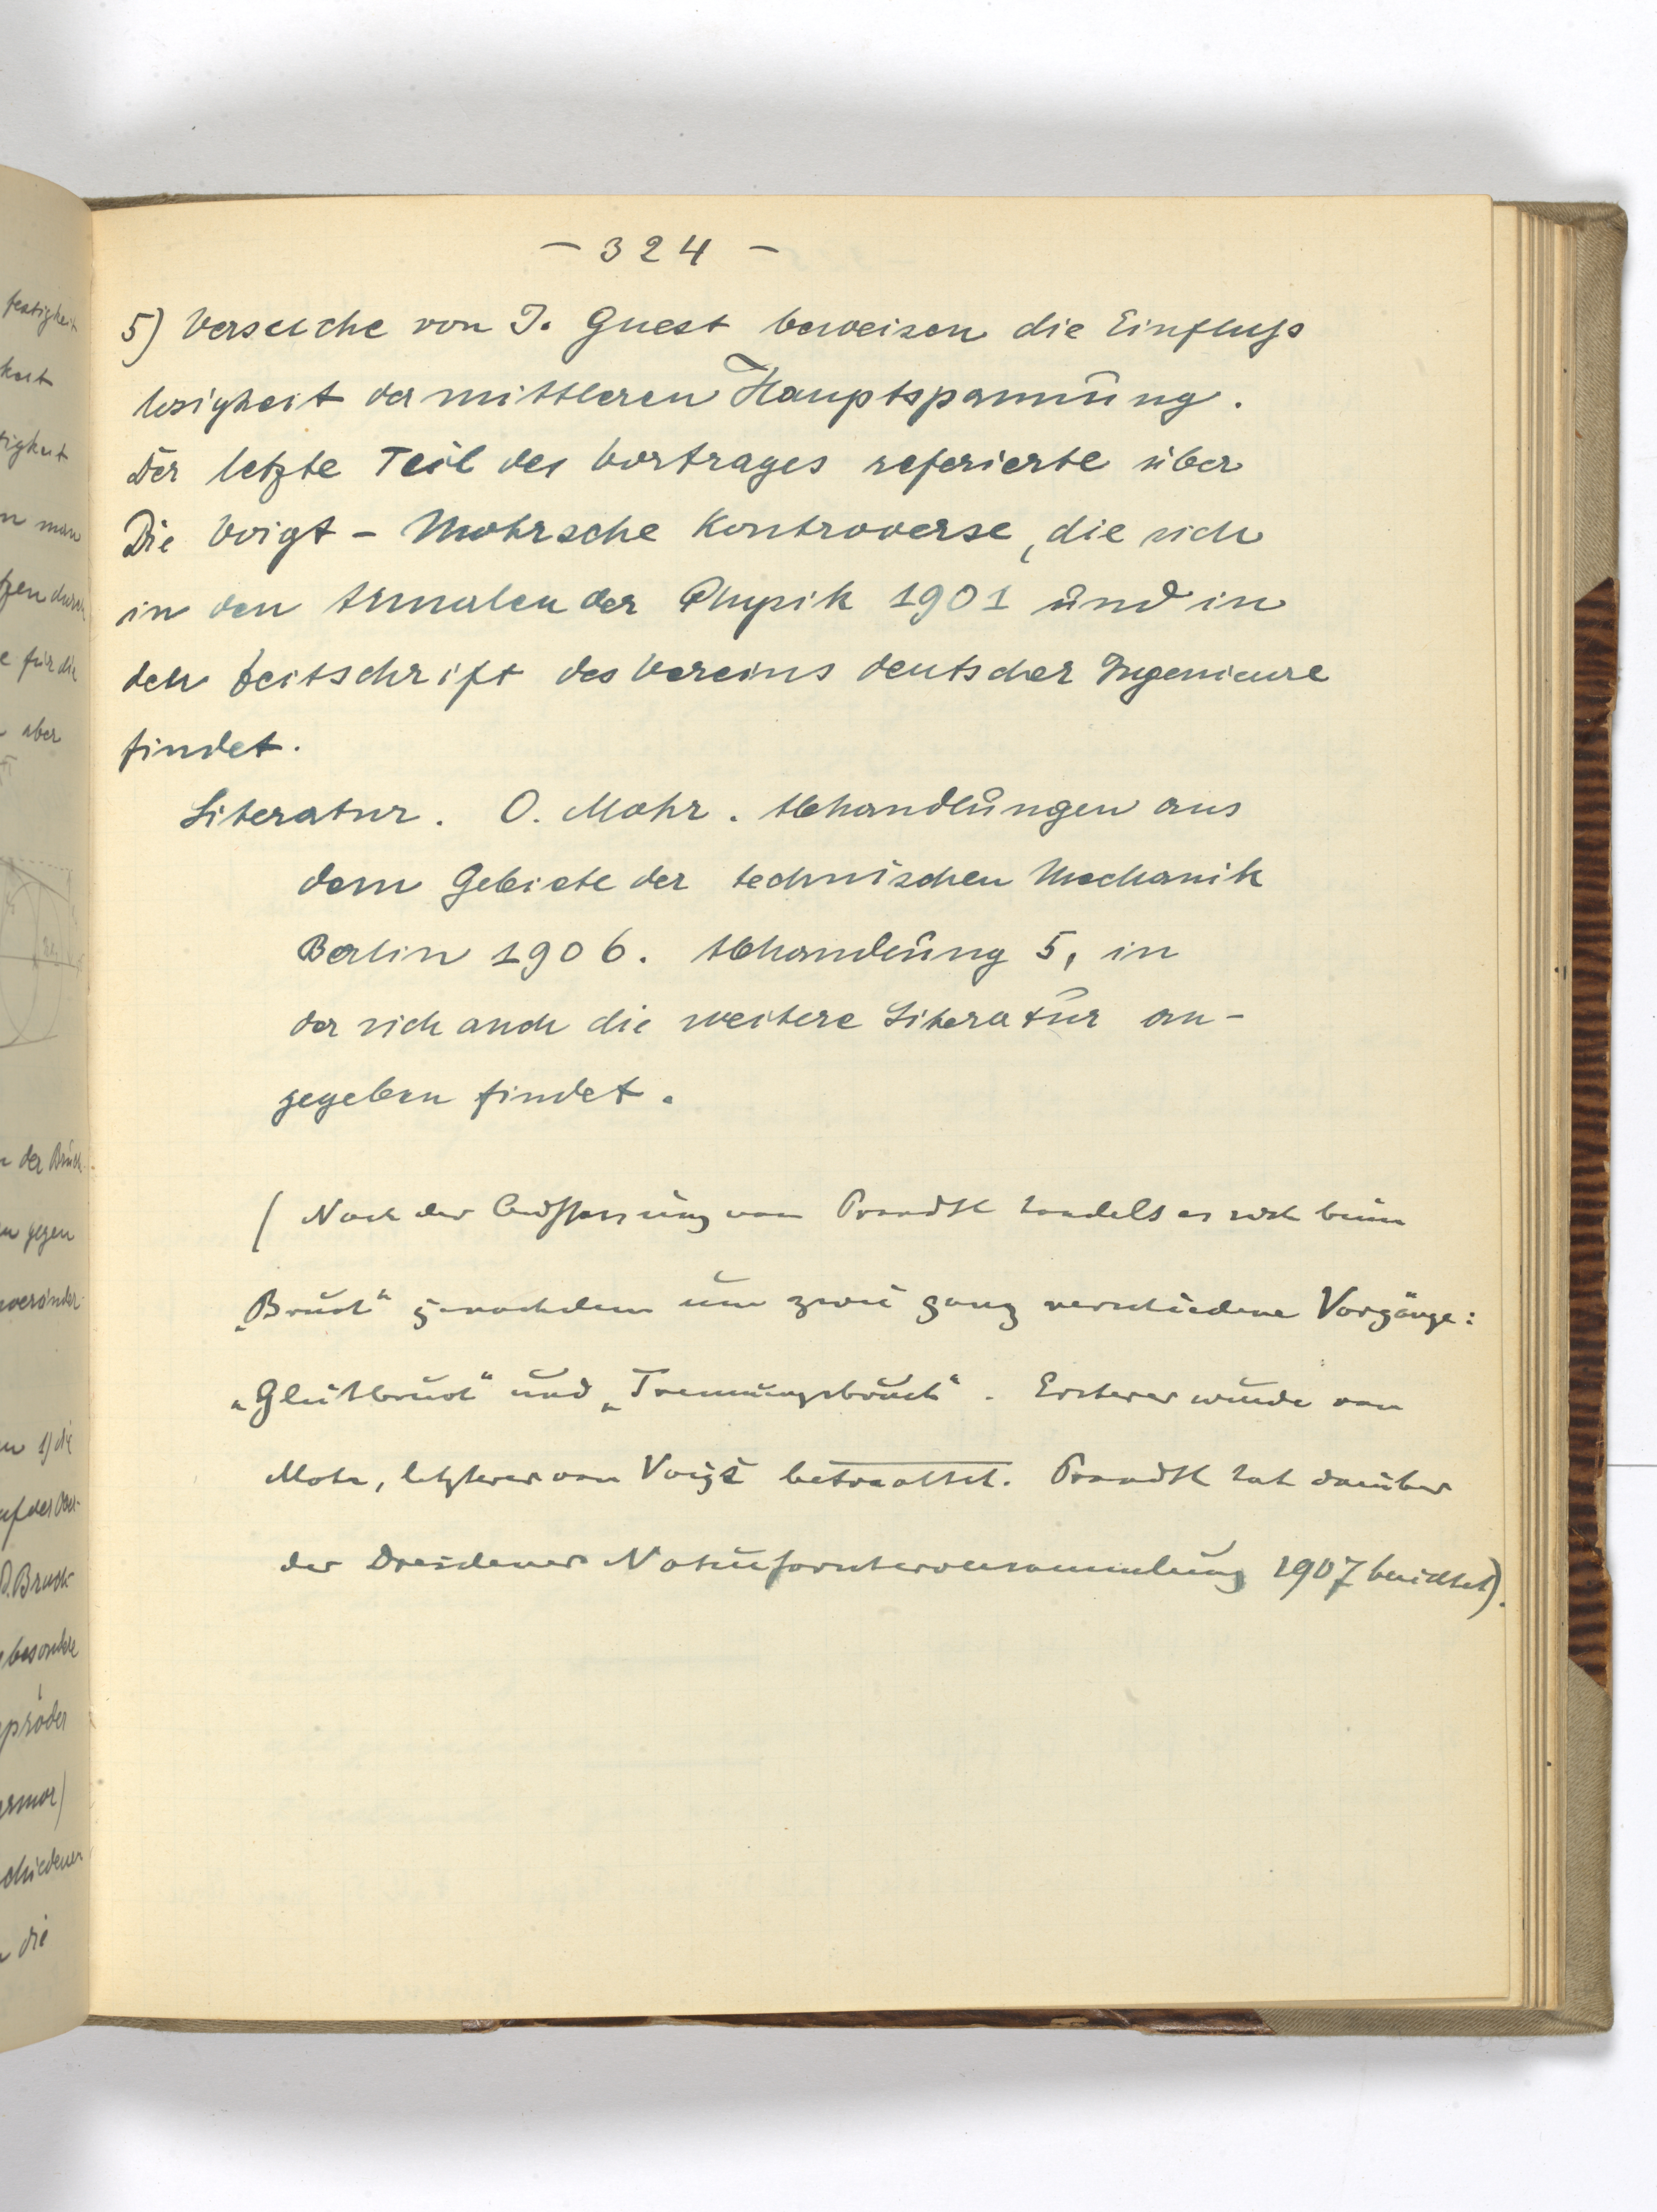 festigkeit
keit
tigkeit
n man
tzen durch
e für die
aber
n der Bruch-
n gegen
veränder-
n 1) die
auf der Ober-
D. Bruch
besondere
spröder
armor)
schiedenen
die
– 324 –
5) Versuche von J. Guest beweisen die Einfluss
losigkeit der mittleren Hauptspannung.
Der letzte Teil des Vortrages referierte über
Die Voigt – Mohrsche Kontroverse, die sich
in den Annalen der Physik 1901 und in
der Zeitschrift des Vereins deutscher Ingenieure
findet.
Literatur. O. Mohr. Abhandlungen aus
dem Gebiete der technischen Mechanik
Berlin 1906. Abhandlung 5, in
der sich auch die weitere Literatur an-
gegeben findet.
(Nach der Auffassung von Prandtl handelt es sich beim
„Bruch“ jenachdem um zwei ganz verschiedene Vorgänge:
„Gleitbruch“ und „Trennungsbruch“. Ersterer wurde von
Mohr, letzterer von Voigt betrachtet. Prandtl hat darüber
der Dresdener Naturforscherversammlung 1907 berichtet).